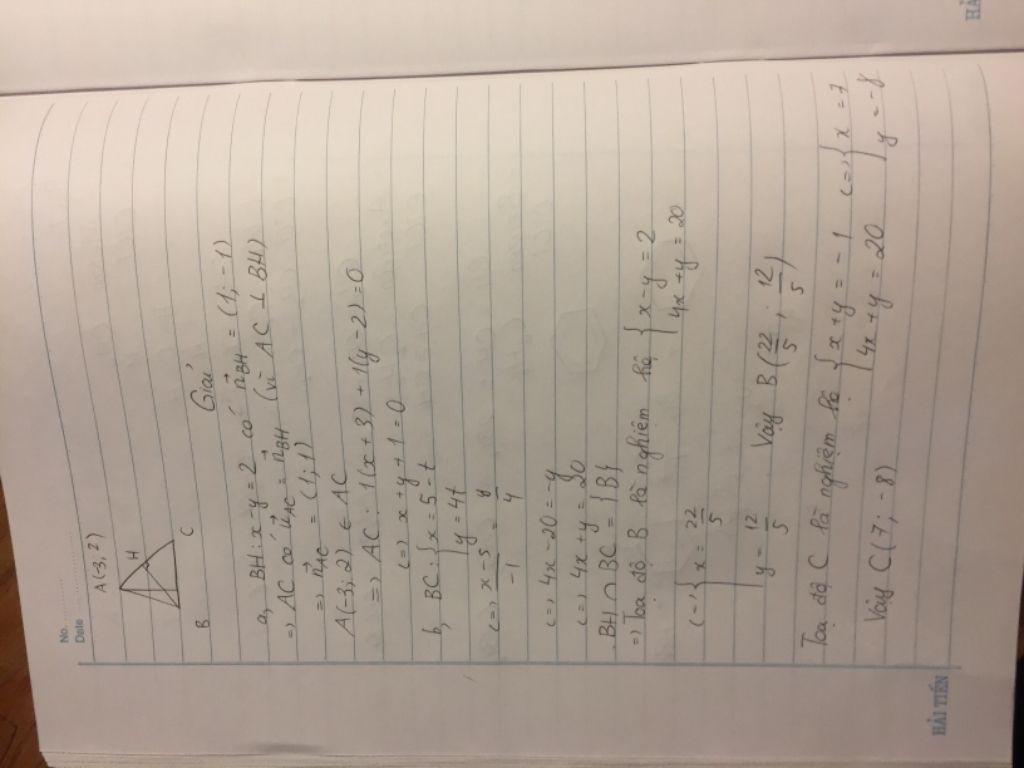 No.
Date
A(-3; 2)
H
B
C
Giải
a, BH: x - y = 2 có n⃗BH = (1; -1)
=> AC có u⃗AC = n⃗BH (vì AC ⊥ BH)
=> n⃗AC = (1; 1)
A(-3; 2) ∈ AC
=> AC: 1(x + 3) + 1(y - 2) = 0
<=> x + y + 1 = 0
b, BC: { x = 5 - t
y = 4t
<=> x-5/-1 = y/4
<=> 4x - 20 = -y
<=> 4x + y = 20
BH ∩ BC = {B}
=> Toạ độ B là nghiệm hệ { x - y = 2
4x + y = 20
<=> { x = 22/5
y = 12/5 Vậy B(22/5; 12/5)
Toạ độ C là nghiệm hệ { x + y = -1 <=> { x = 7
4x + y = 20 y = -8
Vậy C(7; -8)
HẢI TIẾN
HẢ